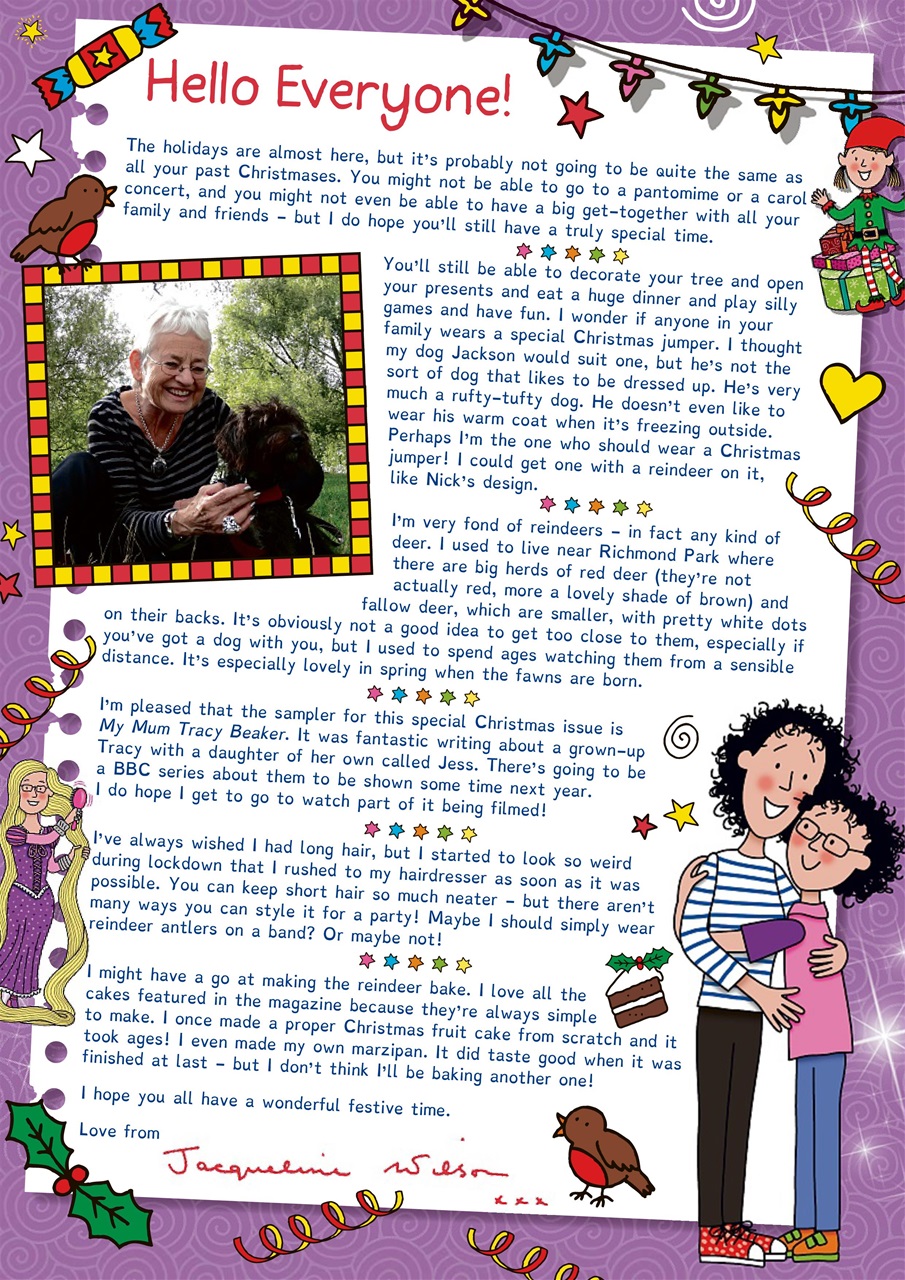 Hello Everyone!
The holidays are almost here, but it's probably not going to be quite the same as
all your past Christmases. You might not be able to go to a pantomime or a carol
concert, and you might not even be able to have a big get-together with all your
family and friends – but I do hope you'll still have a truly special time.
You'll still be able to decorate your tree and open
your presents and eat a huge dinner and play silly
games and have fun. I wonder if anyone in your
family wears a special Christmas jumper. I thought
my dog Jackson would suit one, but he's not the
sort of dog that likes to be dressed up. He's very
much a rufty-tufty dog. He doesn't even like to
wear his warm coat when it's freezing outside.
Perhaps I'm the one who should wear a Christmas
jumper! I could get one with a reindeer on it,
like Nick's design.
I'm very fond of reindeers – in fact any kind of
deer. I used to live near Richmond Park where
there are big herds of red deer (they're not
actually red, more a lovely shade of brown) and
fallow deer, which are smaller, with pretty white dots
on their backs. It's obviously not a good idea to get too close to them, especially if
you've got a dog with you, but I used to spend ages watching them from a sensible
distance. It's especially lovely in spring when the fawns are born.
I'm pleased that the sampler for this special Christmas issue is
My Mum Tracy Beaker. It was fantastic writing about a grown-up
Tracy with a daughter of her own called Jess. There's going to be
a BBC series about them to be shown some time next year.
I do hope I get to go to watch part of it being filmed!
I've always wished I had long hair, but I started to look so weird
during lockdown that I rushed to my hairdresser as soon as it was
possible. You can keep short hair so much neater – but there aren't
many ways you can style it for a party! Maybe I should simply wear
reindeer antlers on a band? Or maybe not!
I might have a go at making the reindeer bake. I love all the
cakes featured in the magazine because they're always simple
to make. I once made a proper Christmas fruit cake from scratch and it
took ages! I even made my own marzipan. It did taste good when it was
finished at last – but I don't think I'll be baking another one!
I hope you all have a wonderful festive time.
Love from
Jacqueline Wilson
x x x